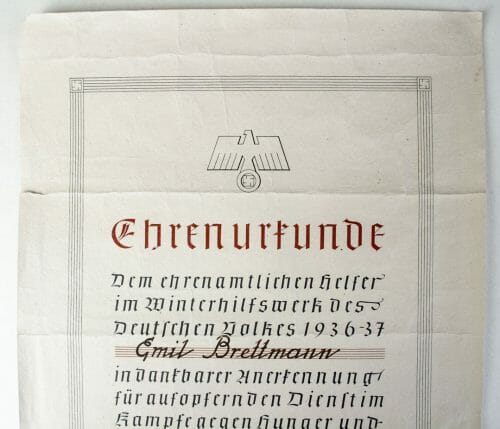 Ehrenurkunde
Dem ehrenamtlichen Helfer
im Winterhilfswerk des
Deutschen Volkes 1936-37
Emil Brettmann
in dankbarer Anerkennung
für aufopfernden Dienst im
Kampfe gegen Hunger und